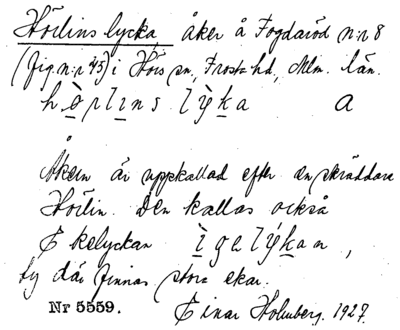 Hörlins lycka åker å Fogdaröd n:r 8
(fig. n:r 43) i Hörs sn, Frosta hd, Mlm. län.
hø̀rlins lỳka a
Åkern är uppkallad efter en skräddare
Hörlin. Den kallas också
Ekelyckan ìgelýkan,
ty där finnas stora ekar.
Nr 5559. Einar Holmberg. 1927.